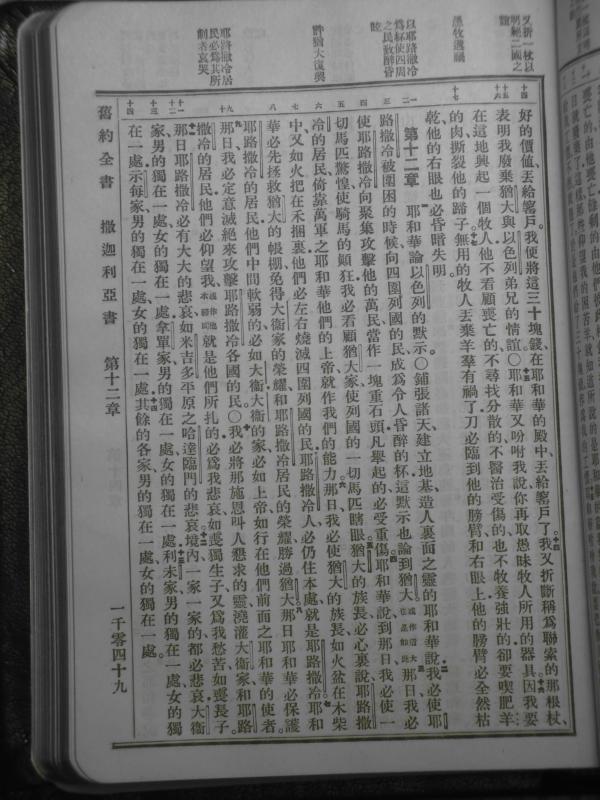 又折一杖以
明絕二國之
誼
愚牧遇禍
以耶路撒冷
爲杯使四周
之民致醉昏
眩
猶大復興
耶路撒冷居
民必爲其所
刺者哀哭
好的價值、丟給窰戶、我便將這三十塊錢、在耶和華的殿中、丟給窰戶了。十四我又折斷稱爲聯索的那根杖、
表明我廢棄猶大與以色列弟兄的情誼。〇十五耶和華又吩咐我說、你再取愚昧牧人所用的器具、十六因我要
在這地興起一個牧人、他不看顧喪亡的、不尋找分散的、不醫治受傷的、也不牧養強壯的、卻要喫肥羊
的肉、撕裂他的蹄子。十七無用的牧人丟棄羊羣有禍了、刀必臨到他的膀臂、和右眼上、他的膀臂必全然枯
乾、他的右眼也必昏暗失明。
第十二章 一耶和華論以色列的默示。〇鋪張諸天、建立地基、造人裏面之靈的耶和華說、二我必使耶
路撒冷被圍困的時候、向四圍列國的民、成爲令人昏醉的杯、這默示也論到猶大。或作猶大也是如此三那日、我必
使耶路撒冷向聚集攻擊他的萬民、當作一塊重石頭、凡舉起的必受重傷。四耶和華說、到那日、我必使一
切馬匹驚惶、使騎馬的顛狂、我必看顧猶大家、使列國的一切馬匹瞎眼。五猶大的族長必心裏說、耶路撒
冷的居民、倚靠萬軍之耶和華他們的上帝、就作我們的能力。六那日、我必使猶大的族長、如火盆在木柴
中、又如火把在禾捆裏、他們必左右燒滅四圍列國的民、耶路撒冷人必仍住本處、就是耶路撒冷。七耶和
華必先拯救猶大的帳棚、免得大衞家的榮耀、和耶路撒冷居民的榮耀、勝過猶大。八那日耶和華必保護
耶路撒冷的居民、他們中間軟弱的必如大衞、大衞的家必如上帝、如行在他們前面之耶和華的使者。
九那日、我必定意滅絕來攻擊耶路撒冷各國的民。〇十我必將那施恩叫人懇求的靈、澆灌大衞家、和耶路
撒冷的居民、他們必仰望我、或作他本節同就是他們所扎的、必爲我悲哀、如喪獨生子、又爲我愁苦、如喪長子。
十一那日、耶路撒冷必有大大的悲哀、如米吉多平原之哈達臨門的悲哀。十二境內、一家一家的都必悲哀、大衞
家、男的獨在一處、女的獨在一處、拿單家、男的獨在一處、女的獨在一處。十三利未家、男的獨在一處、女的獨
在一處、示每家、男的獨在一處、女的獨在一處。十四其餘的各家、男的獨在一處、女的獨在一處。
舊約全書 撒迦利亞書 第十二章 一千零四十九